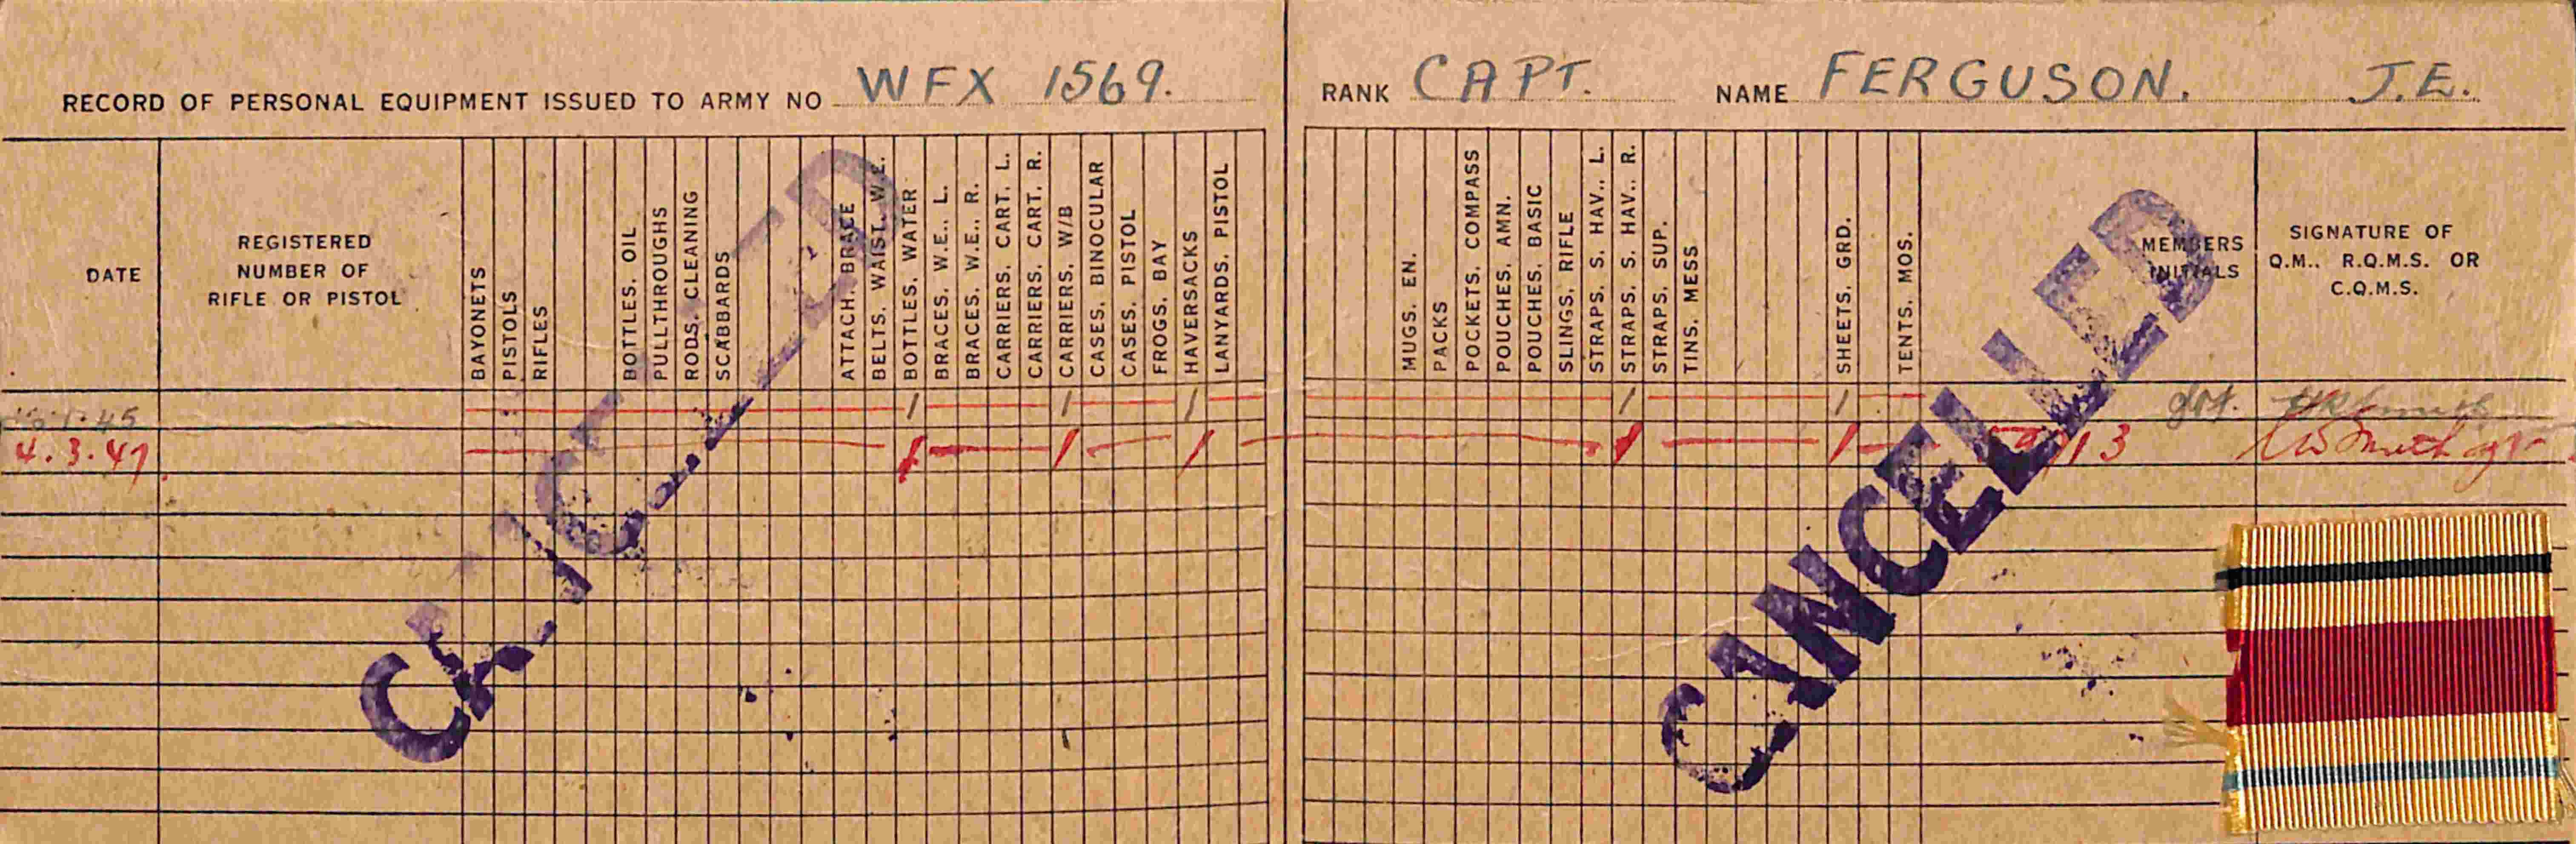 RECORD OF PERSONAL EQUIPMENT ISSUED TO ARMY NO WFX 1569. RANK CAPT. NAME FERGUSON. J.E.
DATE
REGISTERED
NUMBER OF
RIFLE OR PISTOL
BAYONETS
PISTOLS
RIFLES
BOTTLES. OIL
PULLTHROUGHS
RODS. CLEANING
SCABBARDS
ATTACH. BRACE
BELTS. WAIST. W.E.
BOTTLES. WATER
BRACES. W.E.. L.
BRACES. W.E.. R.
CARRIERS. CART. L.
CARRIERS. CART. R.
CARRIERS. W/B
CASES. BINOCULAR
CASES. PISTOL
FROGS. BAY
HAVERSACKS
LANYARDS. PISTOL
MUGS. EN.
PACKS
POCKETS. COMPASS
POUCHES. AMN.
POUCHES. BASIC
SLINGS. RIFLE
STRAPS. S. HAV.. L.
STRAPS. S. HAV.. R.
STRAPS. SUP.
TINS. MESS
SHEETS. GRD.
TENTS. MOS.
MEMBERS
INITIALS
SIGNATURE OF
Q.M.. R.Q.M.S. OR
C.Q.M.S.
1 1 1 1 1
4.3.47. 1 1 1 1 1
CANCELLED